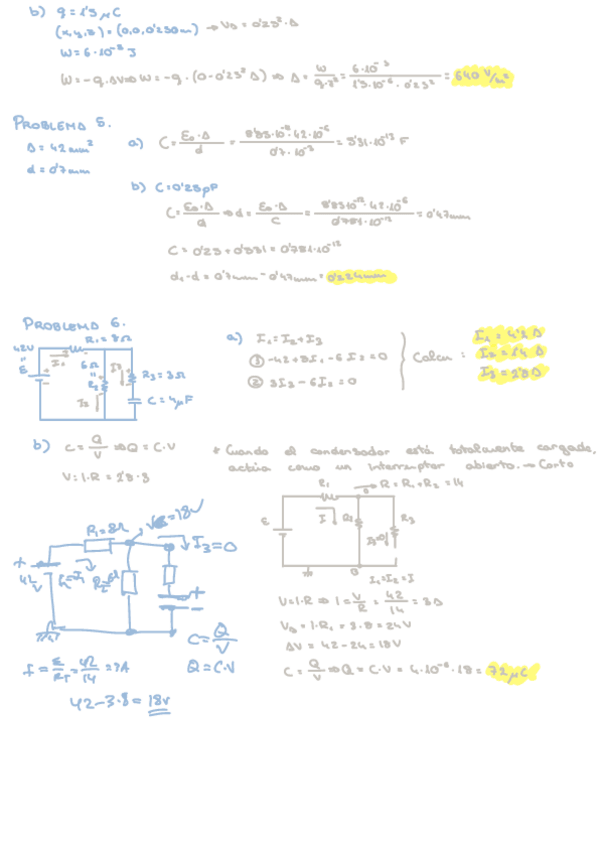 b) q = 1'5 μC
(x,y,z) = (0,0,0'250m) → V_D = 0'25² · A
W = 6·10⁻⁵ J
W = -q·ΔV ⇒ W = -q·(0-0'25² A) ⇒ A = W/q·z² = 6·10⁻⁵/1'5·10⁻⁶·0'25² = 640 V/m²
PROBLEMA 5.
A = 42 mm²
d = 0'7mm
a) C = ε₀·A/d = 8'85·10⁻¹²·42·10⁻⁶/0'7·10⁻³ = 5'31·10⁻¹³ F
b) C = 0'25pF
C = ε₀·A/d ⇒ d = ε₀·A/C = 8'85·10⁻¹²·42·10⁻⁶/0'781·10⁻¹² = 0'47mm
C = 0'25 + 0'531 = 0'781·10⁻¹²
d₁-d = 0'7mm - 0'47mm = 0'224mm
PROBLEMA 6.
42V
R₁ = 8Ω
I₁
6Ω
R₂
I₂
I₃
R₃ = 3Ω
C = 4μF
a) I₁ = I₂ + I₃
① -42 + 8I₁ - 6I₂ = 0
② 3I₃ - 6I₂ = 0
Calcu :
I₁ = 4'2 A
I₂ = 1'4 A
I₃ = 2'8 A
b) C = Q/V ⇒ Q = C·V
V = I·R = 2'8·3
* Cuando el condensador está totalmente cargado,
actúa como un interruptor abierto. → Corto
R₁
→ R = R₁ + R₂ = 14
ε
I
R₂
R₃
I₃=0
I₁ = I₂ = I
V = I·R ⇒ I = V/R = 42/14 = 3A
V_D = I·R₁ = 3·8 = 24V
ΔV = 42 - 24 = 18V
C = Q/V ⇒ Q = C·V = 4·10⁻⁶·18 = 72μC
R₁ = 8Ω
= 18V
I₃ = 0
42V
C = Q/V
I = ε/R_T = 42/14 = 3A
Q = C·V
42 - 3·8 = 18V